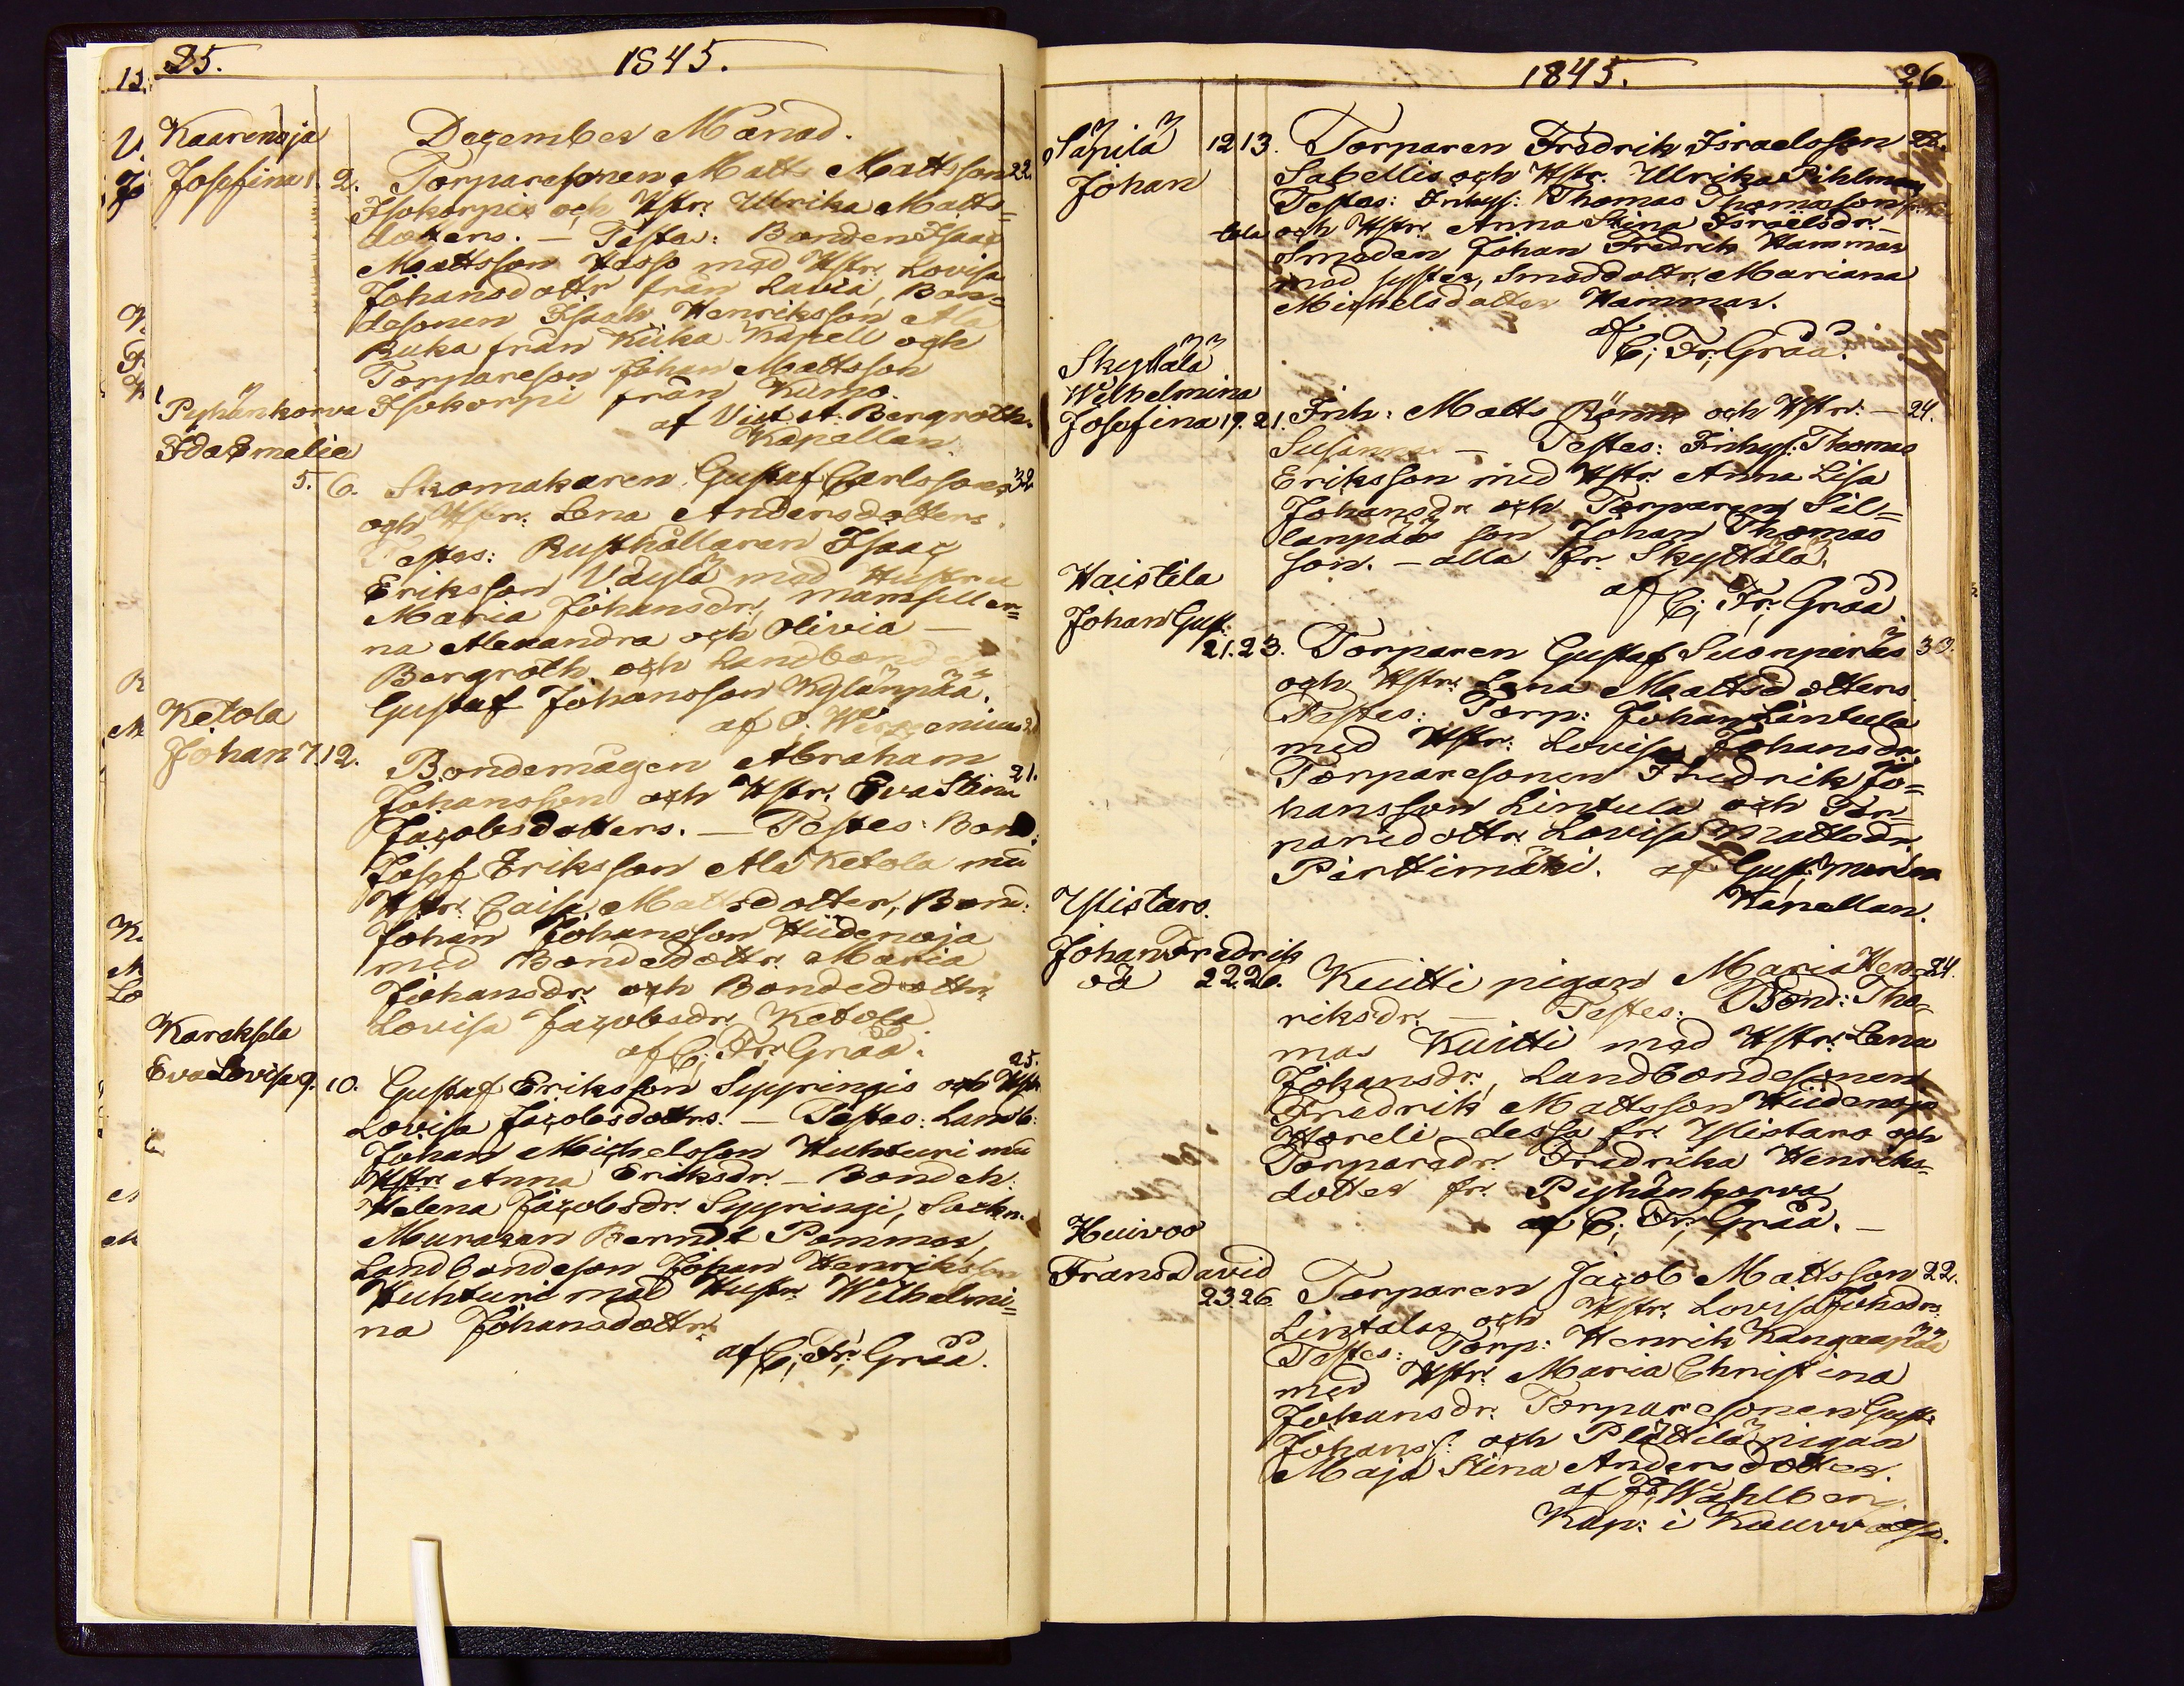 25. 1845.
December Månad.
Kaarenoja
Josefina 1. 2. Torparesonen Matts Mattsson 22.
Isokorpis och Hstr: Ulrika Matts=
dotters. — Testes: Bonden Isaac
Mattsson Hesso med Hstr. Lovisa
Johansdottr från Lavia, Bon=
desonen Isaak Henriksson Ala
Ruka från Kiika Kapell och
Torpareson Johan Mattsson
Isokorpi från Kumo.
af Vict. A. Bergroth.
Kapellan.
Pyhänkorva
Ida Emelia
5. 6. Skomakaren Gustaf Carlssons 32
och Hstr: Lena Andersdotters.
Testes: Rusthållaren Isaac
Eriksson Väylä med Hustru
Maria Johansdr, mamseller=
na Alexandra och Olivia —
Bergroth och Landbonden
Gustaf Johansson Kylänpää.
Ketola
Johan 7. 12. Bondemågen Abraham
Johanssons och Hstr. Eva Stina 21.
Jacobsdotters. — Testes: Bond:
Josef Eriksson Ala Ketola med
Hstr: Caisa Mattsdotter, Bond:
Johan Johansson Hiidenoja
med Bondedottr. Maria
Johansdr. och Bondedottr:
Lovisa Jacobsdr. Ketola.
af C: Fr: Gråå.
Karaksela
Eva Lovisa 9. 10. Gustaf Eriksson Sypringis och Hstr. 25.
Lovisa Jacobsdottrs. — Testes: Landb:
Johan Michelsson Huhturi med
Hstr: Anna Eriksdr. — Bondeh:
Helena Jacobsdr. Sypringi, Sockn.
Muraren Berndt Pommer,
Landbondeson Johan Henriksson
Huhturi med Hustr. Wilhelmi=
na Johansdottr.
af C: Fr: Gråå.
1845. 26.
Säpilä
Johan
12 13. Torparen Fredrik Israelsson
Sabellis och Hstr. Ulrika Pihlman
Testes: Inhys: Thomas Thomasson
och Hstr. Anna Stina Israelsdr. —
Smeden Johan Fredrik Hammar
med syster, Smeddottr, Mariana
Michelsdotter Hammar.
af C; Fr; Gråå.
Skyttälä
Wilhelmina
Josefina 19. 21. Inh: Matts Rönni och Hstr: — 24.
Susanna — Testes: Inhys: Thomas
Eriksson med Hstr. Anna Lisa
Johansdr. och Torparen Sil=
lanpääs son Johan Thomas
son. — alla fr. Skyttälä.
af C; Fr; Gråå.
Haistila
Johan Gust:
21. 23. Torparen Gustaf Suonperäs 33.
och Hstr: Lena Mattsdotters
Testes: Torp: Johan Lintula
med Hstr: Lovisa Johansdr,
Torparesonen Fredrik Jo=
hansson Lintula och Tor=
paredottr. Lovisa Mattsdr.
Pirttimäki. af Gust:
Kapellan.
Ylistaro.
Johan Fredrik
oä 22 26. Kuitti pigan Maria Hen= 24.
riksdr. — Testes: Bond: Tho=
mas Kuitti med Hstr: Lena
Johansdr., Landbondesonen
Fredrik Mattsson Hiidenoja
Horeli dessa fr: Ylistaro och
Torparedr. Fredrika Henriks=
dotter fr. Pyhänkorva
af C; Fr; Gråå. —
Huivoo
Frans David
23 26. Torparen Jacob Mattsson 22.
Lintalas och Hstr: Lovisa Johsdrs.
Testes: Torp: Henrik Kangaapää
med Hstr: Maria Christina
Johansdr. Torparesonen Gust:
Johanss: och Plättilä pigan
Maja Stina Andersdotter.
af F; Wahlberg
Kap: i Kauvatsa.